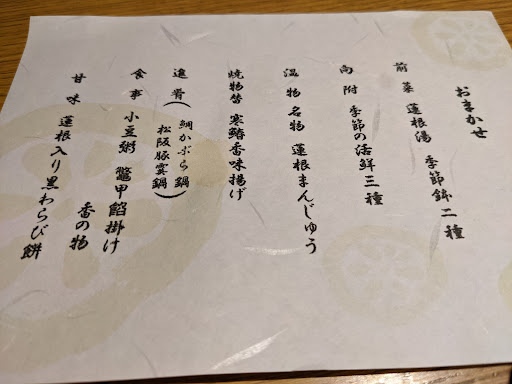 おまかせ
前菜 蓮根湯 季節鉢二種
向附 季節の活鮮三種
温物 名物 蓮根まんじゅう
焼物替 寒鰆香味揚げ
進肴(鯛かぶら鍋
松阪豚雲鍋)
食事 小豆粥 鼈甲餡掛け
香の物
甘味 蓮根入り黒わらび餅